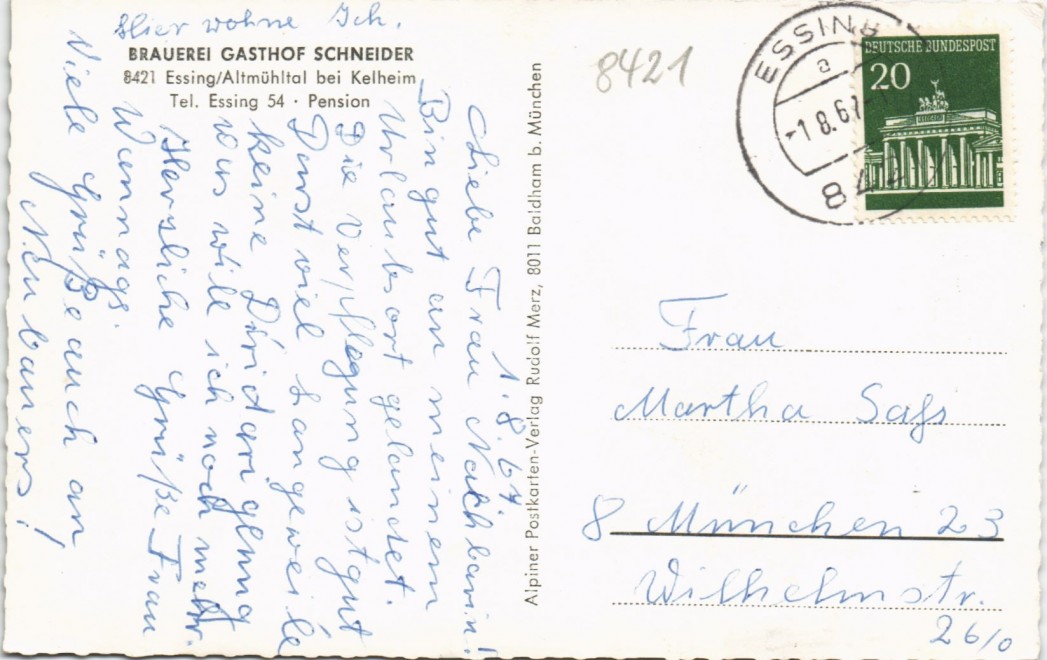 Hier wohne Ich.
BRAUEREI GASTHOF SCHNEIDER
8421 Essing/Altmühltal bei Kelheim
Tel. Essing 54 · Pension
1.8.67.
Liebe Frau Nachbarin!
Bin gut an meinem
Urlaubsort gelandet.
Die Verpflegung ist gut
Durst viel Langeweile
keine Diridari genug
was will ich noch mehr.
Herzliche Grüße Frau
Wannags.
Viele Grüße auch an
Neubauers!
Alpiner Postkarten-Verlag Rudolf Merz, 8011 Baldham b. München
8421
ESSING
a
-1.8.67
842
DEUTSCHE BUNDESPOST
20
Frau
Martha Sass
8 München 23
Wilhelmstr.
26/0